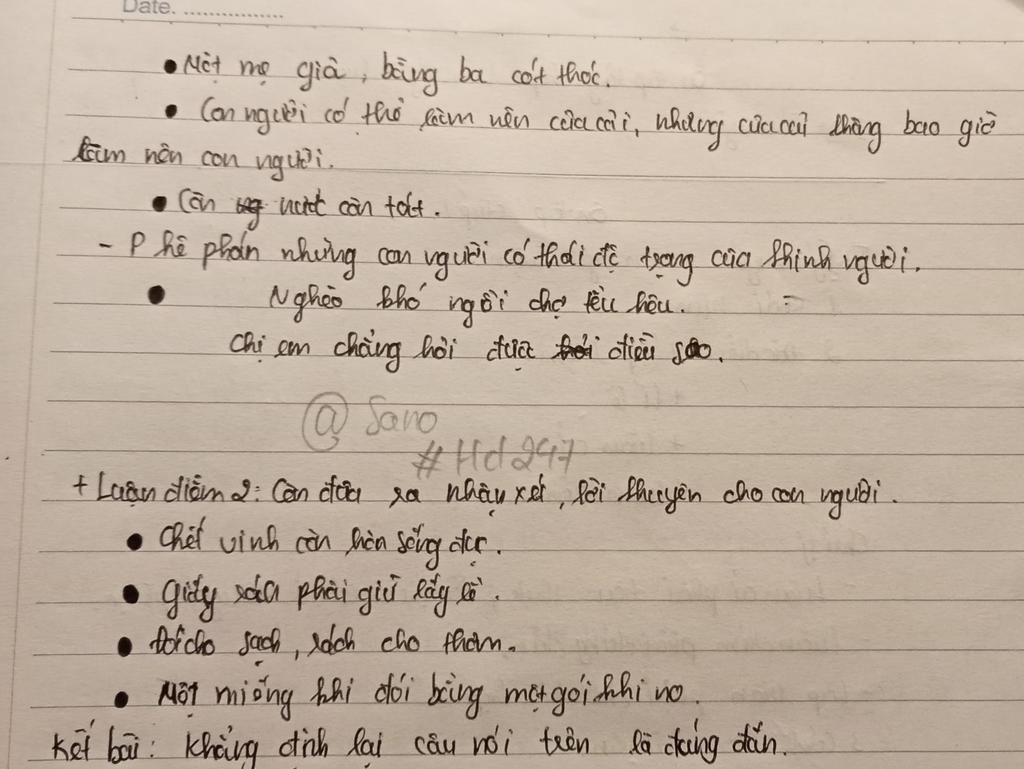 Date. ................
• Một mẹ già, bằng ba cót thóc.
• Con người có thể làm nên của cải, nhưng của cải không bao giờ
làm nên con người.
• Còn nước còn tát.
- Phê phán những con người có thái độ trọng của khinh người.
• Nghèo khó ngồi chợ tều hêu.
Chị em chẳng hỏi được điều sao.
@ Sano
#Hd247
+ Luận điểm 2: Còn đưa ra nhận xét, lời khuyên cho con người.
• Chết vinh còn hơn sống đục.
• Giấy rách phải giữ lấy lề.
• Đói cho sạch, rách cho thơm.
• Một miếng khi đói bằng một gói khi no.
Kết bài: Khẳng định lại câu nói trên là đúng đắn.